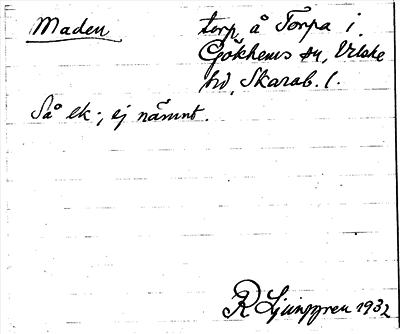 Maden torp å Torpa i
Gökhems sn, Vilske
hd, Skarab. l.
Så ek.; ej nämnt.
R Ljunggren 1932